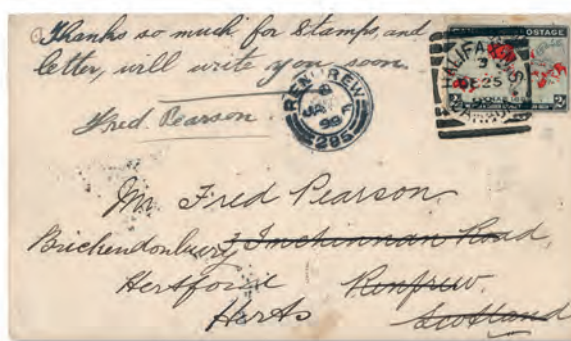 Thanks so much for Stamps, and
letter, will write you soon.
Fred Pearson.
RENFREW
JA
99
295
POSTAGE
HALIFAX
DE 25
2
Mr Fred Pearson.
Brickendonbury 3 Inchinnan Road,
Hertford Renfrew.
Herts Scotland